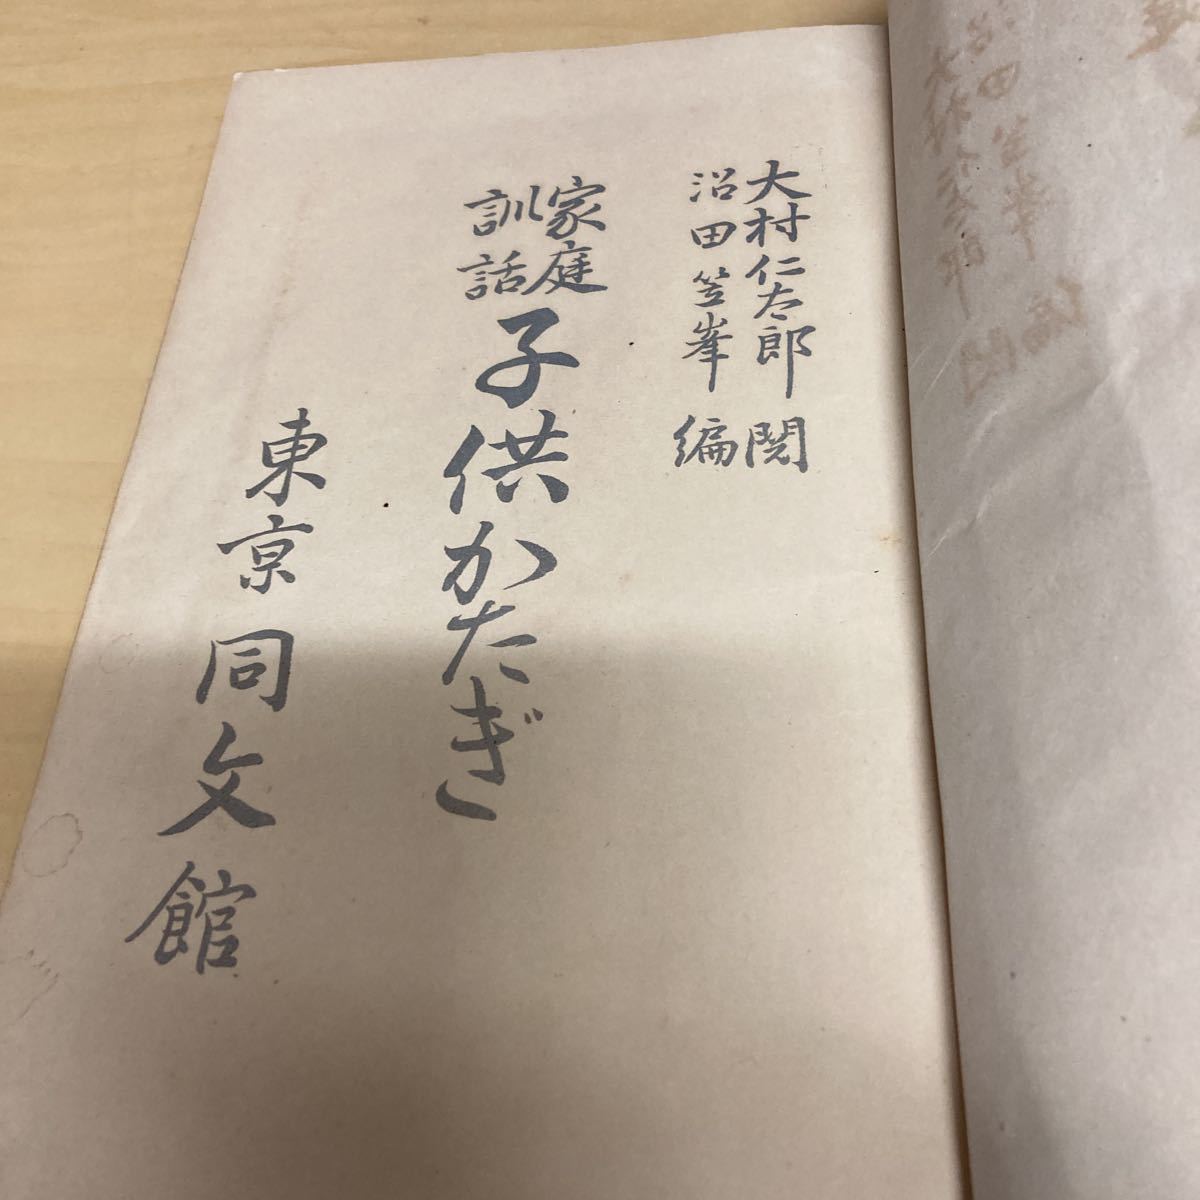 大村仁太郎閲
沼田笠峯編
家庭
訓話
子供かたぎ
東京同文館